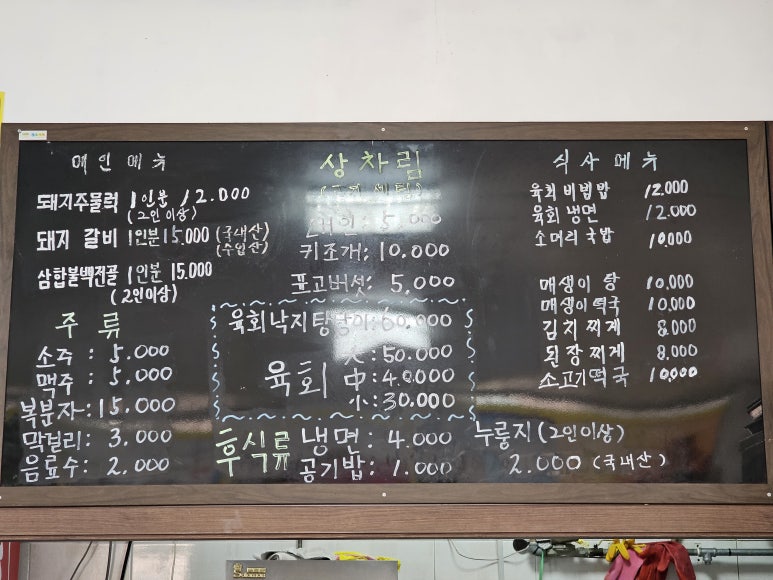 메인메뉴
돼지주물럭 1인분 12.000
(2인이상)
돼지 갈비 1인분 15.000 (국내산)
(수입산)
삼합불백전골 1인분 15.000
(2인이상)
주 류
소주 : 5.000
맥주 : 5.000
복분자 : 15.000
막걸리 : 3.000
음료수 : 2.000
상차림
5.000
키조개 : 10.000
표고버섯 : 5.000
육회낙지탕탕이 : 60.000
육회 大 : 50.000
中 : 40.000
小 : 30.000
후식류 냉면 : 4.000
공기밥 : 1.000
식사메뉴
육회비빔밥 12.000
육회 냉면 12.000
소머리국밥 10.000
매생이 탕 10.000
매생이떡국 10.000
김치찌게 8.000
된장찌게 8.000
소고기떡국 10.000
누룽지 (2인이상)
2.000 (국내산)